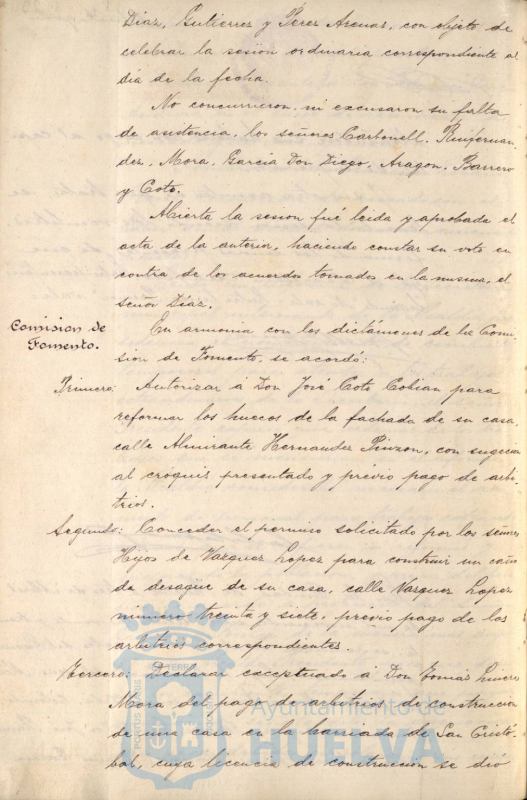 Diaz, Gutierrez y Perez Arenas, con objeto de
celebrar la sesion ordinaria correspondiente al
dia de la fecha.
No concurrieron, ni excusaron su falta
de asistencia, los señores Carbonell, Ruifernan
dez, Mora, Garcia Don Diego, Aragon, Barrero
y Coto.
Abierta la sesion fué leida y aprobada el
acta de la anterior, haciendo constar su voto en
contra de los acuerdos tomados en la misma, el
señor Díaz.
Comision de
Fomento.
En armonia con los dictámenes de la Comi
sion de Fomento, se acordó:
Primero: Autorizar á Don José Coto Cobian para
reformar los huecos de la fachada de su casa,
calle Almirante Hernandez Pinzon, con sugecion
al cróquis presentado y prévio pago de arbi
trios.
Segundo: Conceder el permiso solicitado por los señores
Hijos de Vazquez Lopez para construir un caño
de desagüe de su casa, calle Vazquez Lopez
número treinta y siete, prévio pago de los
arbitrios correspondientes.
Tercero: Declarar exceptuado á Don Tomás
Mora del pago de arbitrios de construccion
de una casa en la barriada de San Cristó
bal, cuya licencia de construccion se dió
PORTUS
TERRAE
Ayuntamiento de
HUELVA